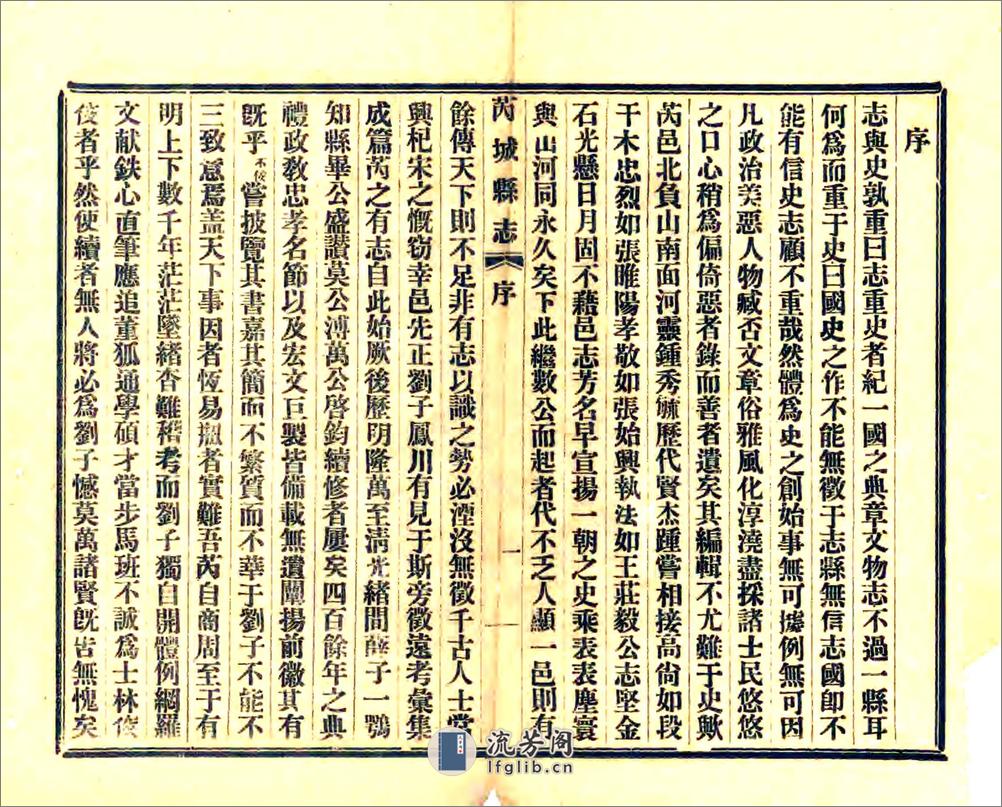 序
志與史孰重曰志重史者紀一國之典章文物志不過一縣耳
何爲而重于史曰國史之作不能無徵于志縣無信志國卽不
能有信史志顧不重哉然體爲史之創始事無可據例無可因
凡政治美惡人物臧否文章俗雅風化淳澆盡採諸士民悠悠
之口心稍爲偏倚惡者錄而善者遺矣其編輯不尤難于史歟
芮邑北負山南面河靈鍾秀毓歷代賢杰踵嘗相接高尙如段
干木忠烈如張睢陽孝敬如張始興執法如王莊毅公志堅金
石光懸日月固不藉邑志芳名早宣揚一朝之史乘表表塵寰
與山河同永久矣下此繼數公而起者代不乏人顯一邑則有
芮城縣志 序 一
餘傳天下則不足非有志以識之勢必湮沒無徵千古人士當
興杞宋之慨窃幸邑先正劉子鳳川有見于斯旁徵遠考彙集
成篇芮之有志自此始厥後歷明隆萬至淸光緒間薛子一鶚
知縣畢公盛讃莫公溥萬公啓鈞續修者屢矣四百餘年之典
禮政敎忠孝名節以及宏文巨製皆備載無遺闡揚前徽其有
旣乎不佞嘗披覽其書嘉其簡而不繁質而不華于劉子不能不
三致意焉盖天下事因者恆易剏者實難吾芮自商周至于有
明上下數千年茫茫墜緒杳難稽考而劉子獨自開體例網羅
文献鉄心直筆應追董狐通學碩才當步馬班不誠爲士林俊
俊者乎然使續者無人將必爲劉子憾莫萬諸賢旣皆無愧矣
流芳阁
lfglib.cn